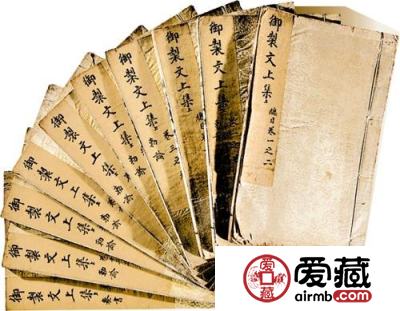 御製文上集 總目卷一之二
御製文上集
御製文上集
御製文上集
御製文上集
御製文上集
御製文上集
御製文上集
御製文上集
御製文上集
爱藏
airmb.com